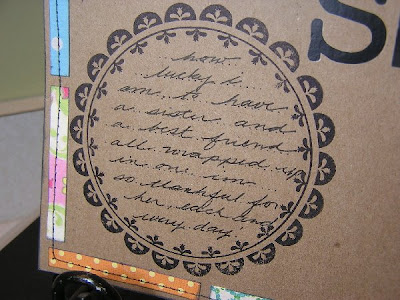 how
lucky i
am to have
a sister and
a best friend
all wrapped up
in on im
so thankful for
her each and
every day!
S